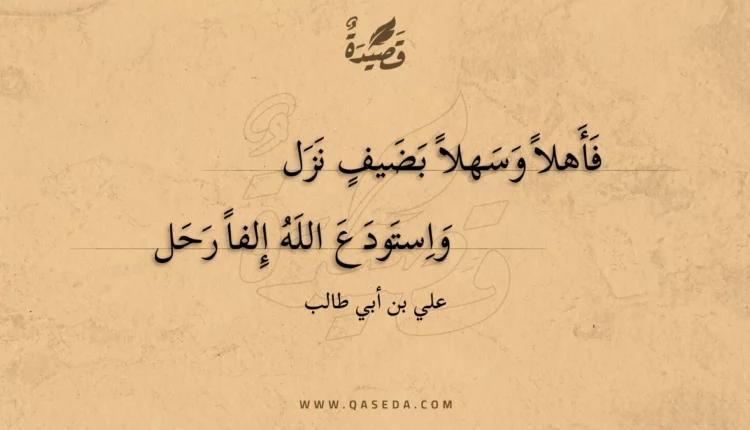 قَصِيْدَةٌ
فَأَهلاً وَسَهلاً بَضَيفٍ نَزَل
وَاِستَودَعَ اللَهُ إِلفاً رَحَل
علي بن أبي طالب
WWW.QASEDA.COM